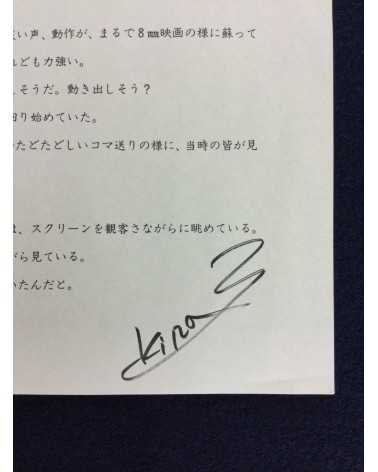 い声、動作が、まるで８㎜映画の様に蘇って
れども力強い。
そうだ。動き出しそう？
回り始めていた。
たどたどしいコマ送りの様に、当時の皆が見
は、スクリーンを観客さながらに眺めている。
がら見ている。
いたんだと。
kira